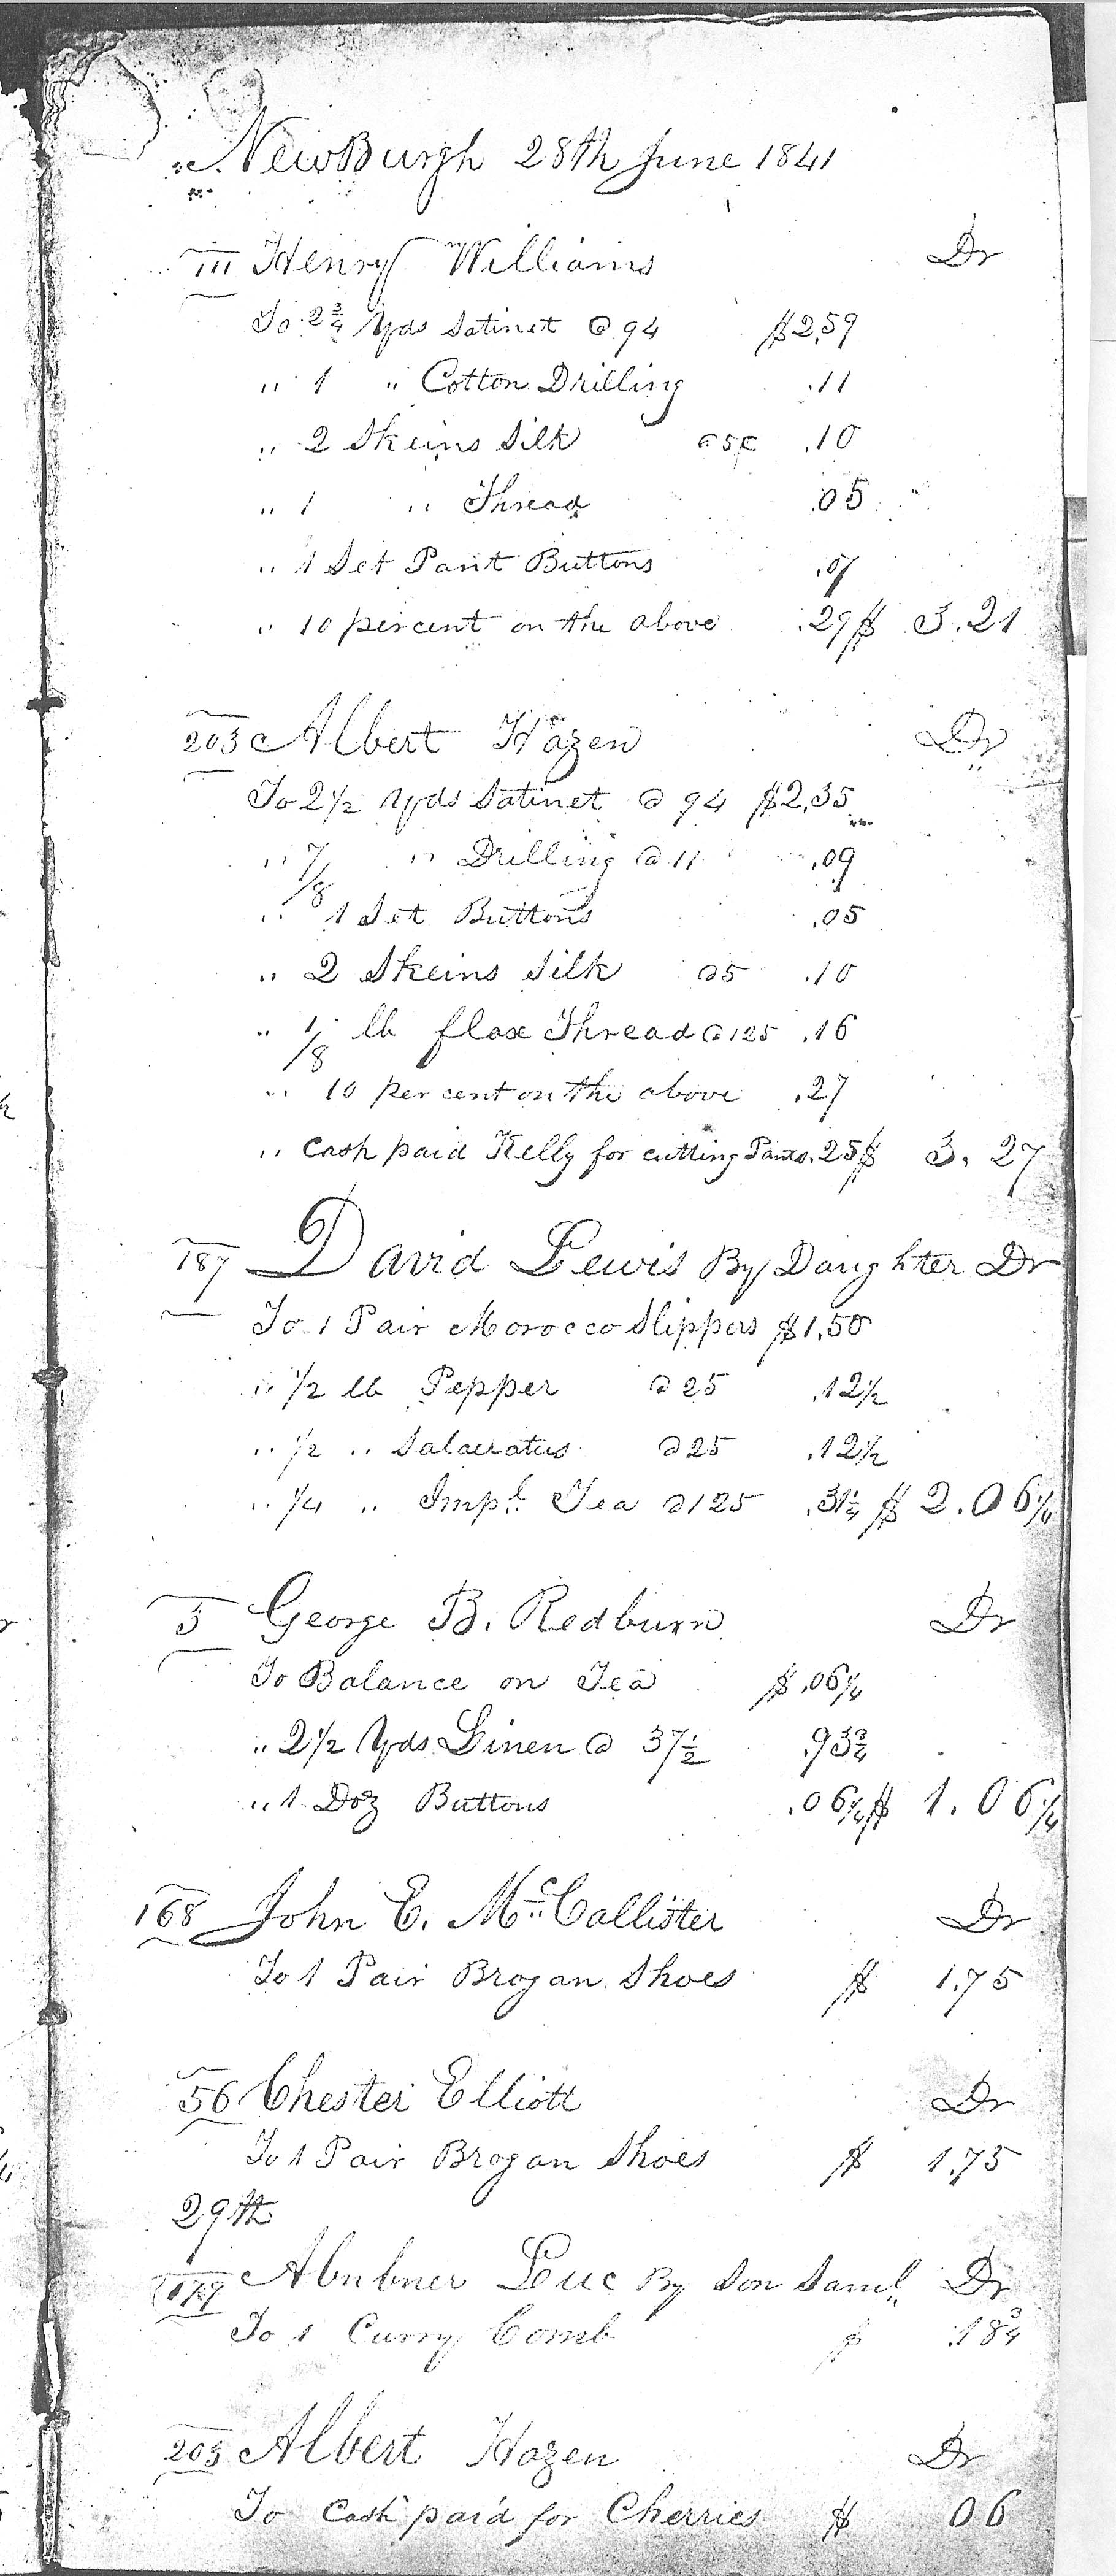 NewBurgh 28th June 1841
111 Henry Williams Dr
To 2 3/4 Yds Satinet @ 94 $2,59
,, 1 ,, Cotton Drilling .11
,, 2 Skeins Silk @ 5c .10
,, 1 ,, Thread .05
,, 1 Set Pant Buttons .07
,, 10 percent on the above .29 $ 3.21
203 Albert Hazen Dr
To 2 1/2 Yds Satinet @ 94 $2,35
,, 7/8 ,, Drilling @ 11 .09
,, 1 Set Buttons .05
,, 2 Skeins Silk @ 5 .10
,, 1/8 lb flax Thread @ 125 .16
,, 10 per cent on the above .27
,, Cash paid Kelly for cutting Pants .25 $ 3. 27
187 David Lewis By Daughter Dr
To 1 Pair Morocco Slippers $1.50
,, 1/2 lb Pepper @ 25 .12 1/2
,, 1/2 ,, Salaeratus @ 25 .12 1/2
,, 1/4 ,, Impl Tea @ 125 .31 1/4 $ 2.06 1/4
5 George B. Redburn Dr
To Balance on Tea $ .06 1/4
,, 2 1/2 Yds Linen @ 37 1/2 .93 3/4
,, 1 Doz Buttons .06 1/4 $ 1.06 1/4
168 John E. McCallister Dr
To 1 Pair Brogan Shoes $ 1.75
56 Chester Elliott Dr
To 1 Pair Brogan Shoes $ 1.75
29th
Luc By Son Saml. Dr
To 1 Curry Comb $ .18 3/4
203 Albert Hazen Dr
To Cash paid for Cherries $ 06